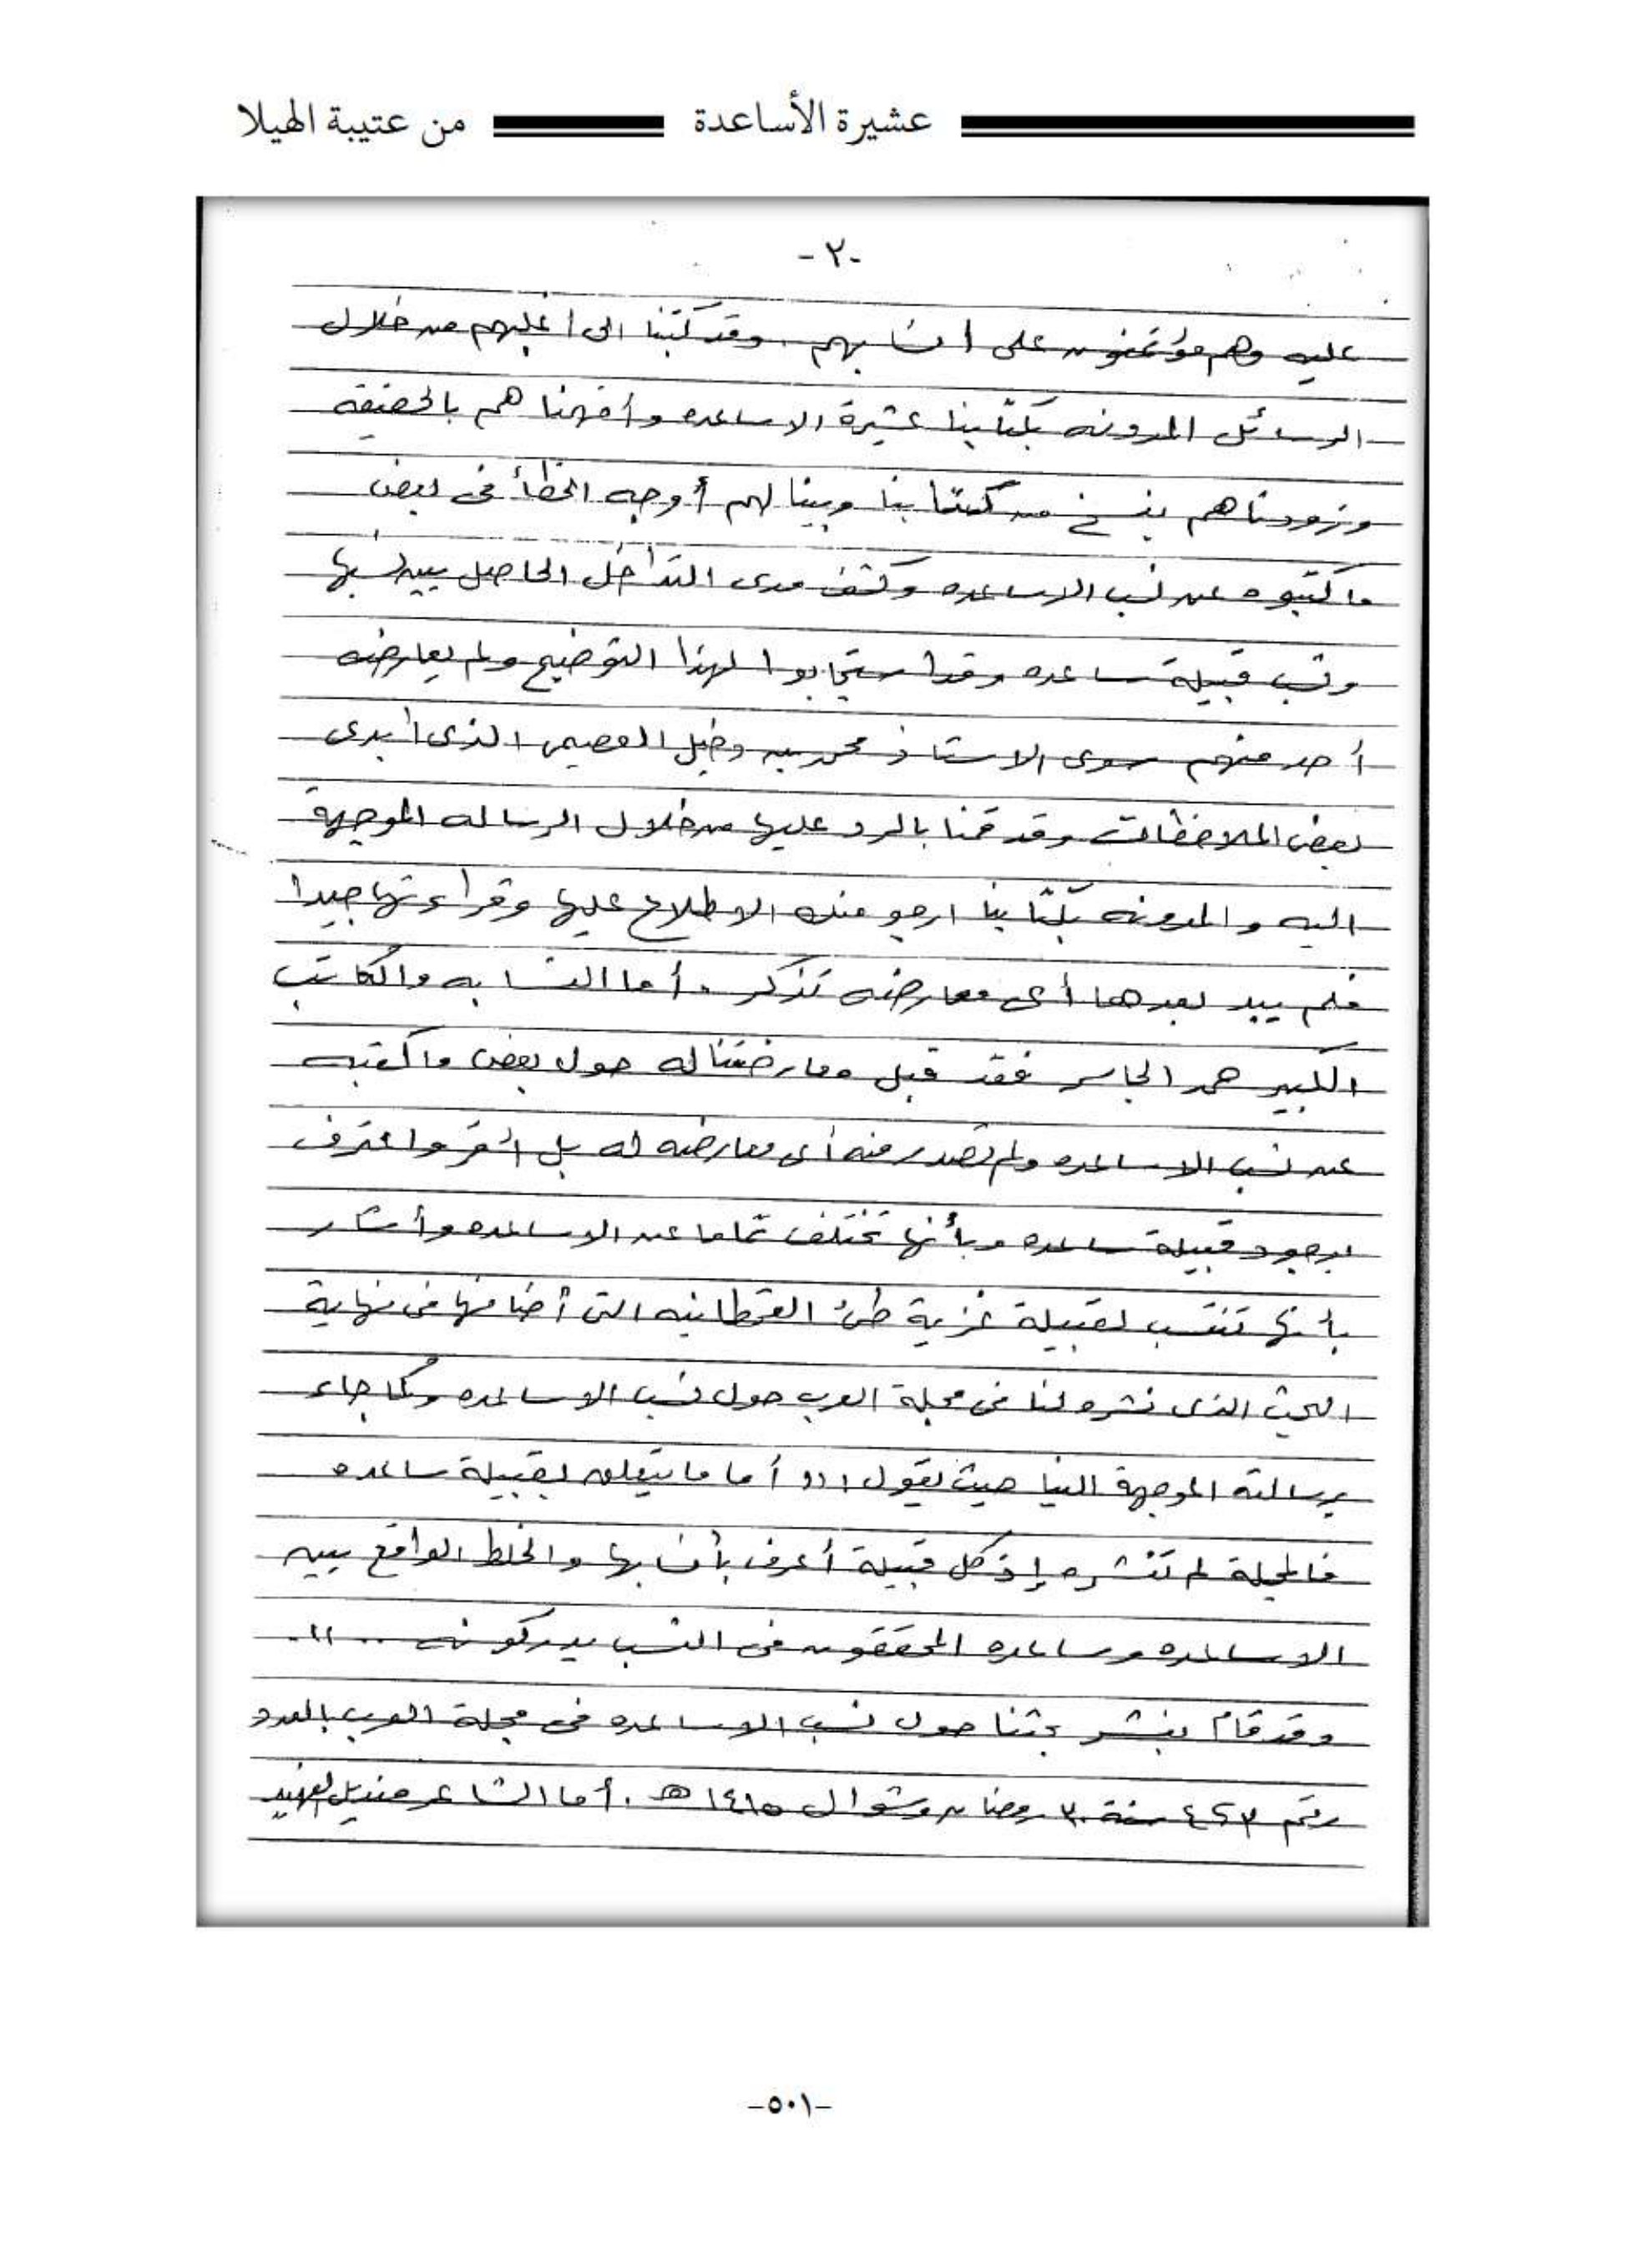 عشيرة الأساعدة من عتيبة الهيلا
-٢-
عليه وهم مؤتمنون على انسابهم . وقد كتبنا الى أغلبهم من خلال
الرسائل المدونه بكتابنا عشيرة الاساعده وأفهمناهم بالحقيقه
وزودناهم بنسخ من كتابنا وبينا لهم أوجه الخطأ في بعض
ماكتبوه عن نسب الاساعده وكشف مدى التداخل الحاصل بين نسبها
ونسب قبيلة ساعده وقد استجابوا لهذا التوضيح ولم يعارضه
أحد منهم سوى الاستاذ محمد بن دخيل العصيمي الذى أبدى
بعض الملاحظات وقد قمنا بالرد عليها من خلال الرساله الموجهة
اليه والمدونه بكتابنا ارجو منك الاطلاع عليها وقراءتها جيدا
فلم يبد بعدها أى معارضه تذكر . أما النسابه والكاتب
الكبير حمد الجاسر فقد قبل معارضتنا له حول بعض ماكتبه
عن نسب الاساعده ولم تصدر منه أى معارضه له بل أقر واعترف
بوجود قبيلة ساعده وبأنها تختلف تماما عن الاساعده وأشار
بأنها تنتسب لقبيلة غزية طئ القحطانيه التى أضافها فى نهاية
البحث الذى نشره لنا فى مجلة العرب حول نسب الاساعده وكما جاء
برسالته الموجهة الينا حيث يقول (( أما ما يتعلق بقبيلة ساعده
فالمجلة لم تنشره إذ كل قبيلة أعرف بأنسابها والخلط الواقع بين
الاساعده وساعده المحققون فى النسب يدركونه .. )) .
وقد قام بنشر بحثنا حول نسب الاساعده فى مجلة العرب بالعدد
رقم ٤٢٣ سنة ٣٠ رمضان وشوال ١٤١٥ هـ . أما الشاعر منديل الفهيد
-٥٠١-